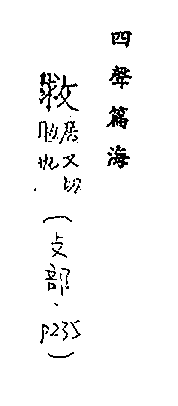 四聲篇海
救
居又切
助也
(攴部.p235)